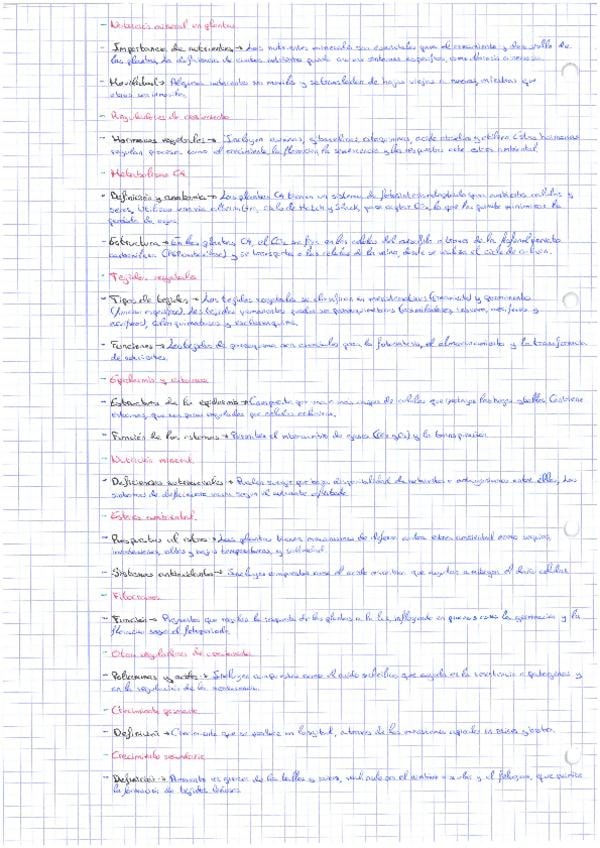 - Nutrición mineral en plantas
- Importancia de nutrientes → Los nutrientes minerales son esenciales para el crecimiento y desarrollo de
las plantas. La deficiencia de ciertos nutrientes puede causar síntomas específicos, como clorosis o necrosis.
- Movilidad → Algunos nutrientes son móviles y se trasladan de hojas viejas a nuevas, mientras que
otros son inmóviles.
- Reguladores de crecimiento
- Hormonas vegetales → Incluyen auxinas, giberelinas, citoquininas, ácido abscísico y etileno. Estas hormonas
regulan procesos como el crecimiento, la floración, la senescencia y las respuestas ante estrés ambiental.
- Metabolismo C4
- Definición y anatomía → Las plantas C4 tienen un sistema de fotosíntesis adaptado para ambientes cálidos y
secos. Utilizan ciclo de Hatch y Slack, para captar CO₂ lo que les permite minimizar la
pérdida de agua.
- Estructura → En las plantas C4, el CO₂ se fija en las células del mesófilo a través de la
carboxilasa y se transporta a las células de la vaina, donde se realiza el ciclo de Calvin.
- Tejidos vegetales
- Tipos de tejidos → Los tejidos vegetales se clasifican en meristemáticos (crecimiento) y permanentes
Los tejidos permanentes pueden ser parenquimáticos
colenquimáticos y esclerénquima.
- Funciones → Los tejidos de parénquima son esenciales para la fotosíntesis, el almacenamiento y la transferencia
de nutrientes.
- Epidermis y estomas
- Estructura de la epidermis → Compuesta por una o más capas de células que protegen las hojas y tallos. Contiene
estomas, que son poros regulados por células oclusivas.
- Función de los estomas → Permiten el intercambio de gases (CO₂ y O₂) y la transpiración.
- Nutrición mineral
- Deficiencias nutricionales → Pueden surgir por baja disponibilidad de nutrientes o antagonismos entre ellos. Los
síntomas de deficiencia varían según el nutriente afectado
- Estrés ambiental
- Respuestas al estrés → Las plantas tienen mecanismos de defensa contra estrés ambiental como sequías,
inundaciones, altas y bajas temperaturas, y salinidad.
- Sistemas antioxidantes → Incluyen compuestos como el ácido ascórbico que ayudan a mitigar el daño celular
- Fitocromos
- Función → Pigmentos que regulan la respuesta de las plantas a la luz, influyendo en procesos como la germinación y la
floración según el fotoperiodo.
- Otros reguladores de crecimiento
- Poliaminas y ácidos → Incluyen compuestos como el ácido salicílico que ayuda en la resistencia a patógenos y
en la regulación de la
- Crecimiento primario
- Definición → Crecimiento que se produce en longitud, a través de los meristemos apicales en raíces y brotes.
- Crecimiento secundario
- Definición → Aumento en grosor de los tallos y raíces, realizado por el cámbium vascular y el felógeno, que permite
la formación de tejidos leñosos.